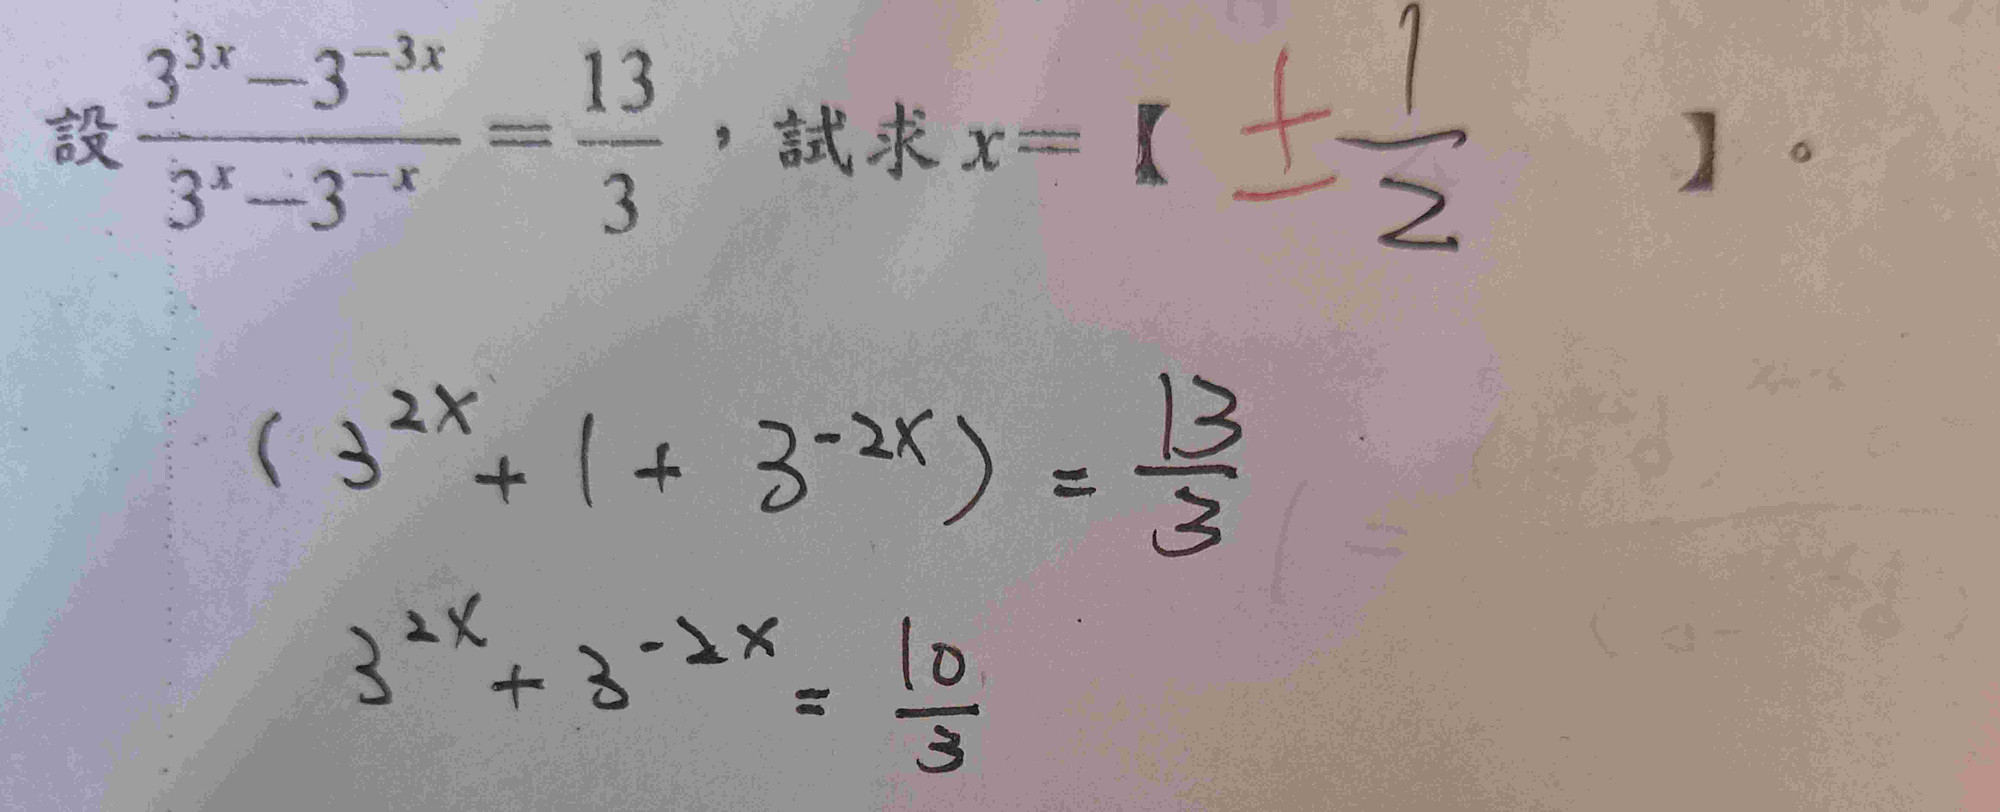 設 (3^{3x} − 3^{−3x}) / (3^x − 3^{−x}) = 13/3，試求 x = 【 ± 1/2 】。
(3^{2x} + 1 + 3^{-2x}) = 13/3
3^{2x} + 3^{-2x} = 10/3